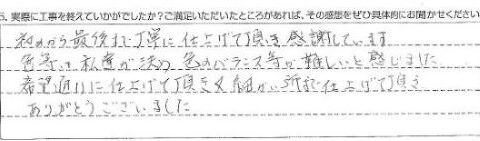 5. 実際に工事を終えていかがでしたか?ご満足いただいたところがあれば、その感想をぜひ具体的にお聞かせください
初めから最後まで丁寧に仕上げて頂き感謝しています
色等は私達が決め 色のバランス等が難しいと感じました
希望通りに仕上げて頂き又細かい所まで仕上げて頂き
ありがとうございました